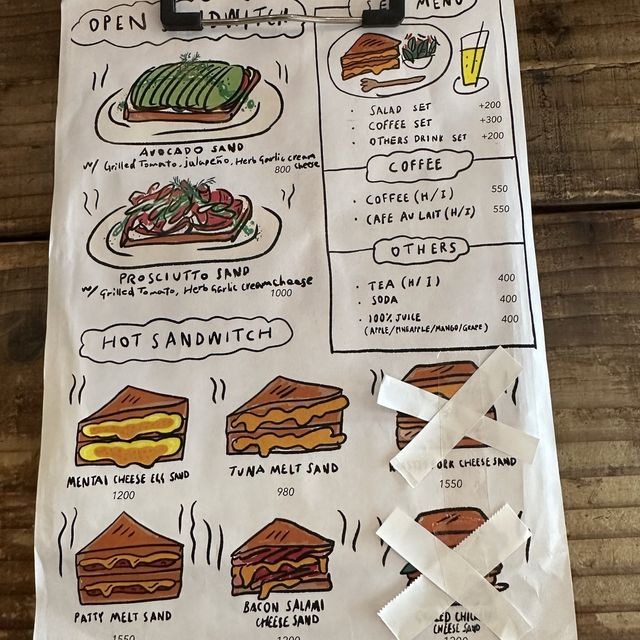 OPEN
SANDWITCH
AVOCADO SAND
w/ Grilled Tomato, jalapeño, Herb Garlic cream cheese
800
PROSCIUTTO SAND
w/ Grilled Tomato, Herb Garlic creamcheese
1000
MENU
SALAD SET +200
COFFEE SET +300
OTHERS DRINK SET +200
COFFEE
COFFEE (H/I) 550
CAFE AU LAIT (H/I) 550
OTHERS
TEA (H/I) 400
SODA 400
100% JUICE 400
(APPLE/PINEAPPLE/MANGO/GRAPE)
HOT SANDWITCH
MENTAI CHEESE EGG SAND
1200
TUNA MELT SAND
980
CHEESE SAND
1550
PATTY MELT SAND
1550
BACON SALAMI
CHEESE SAND
1200
CHEESE SAND